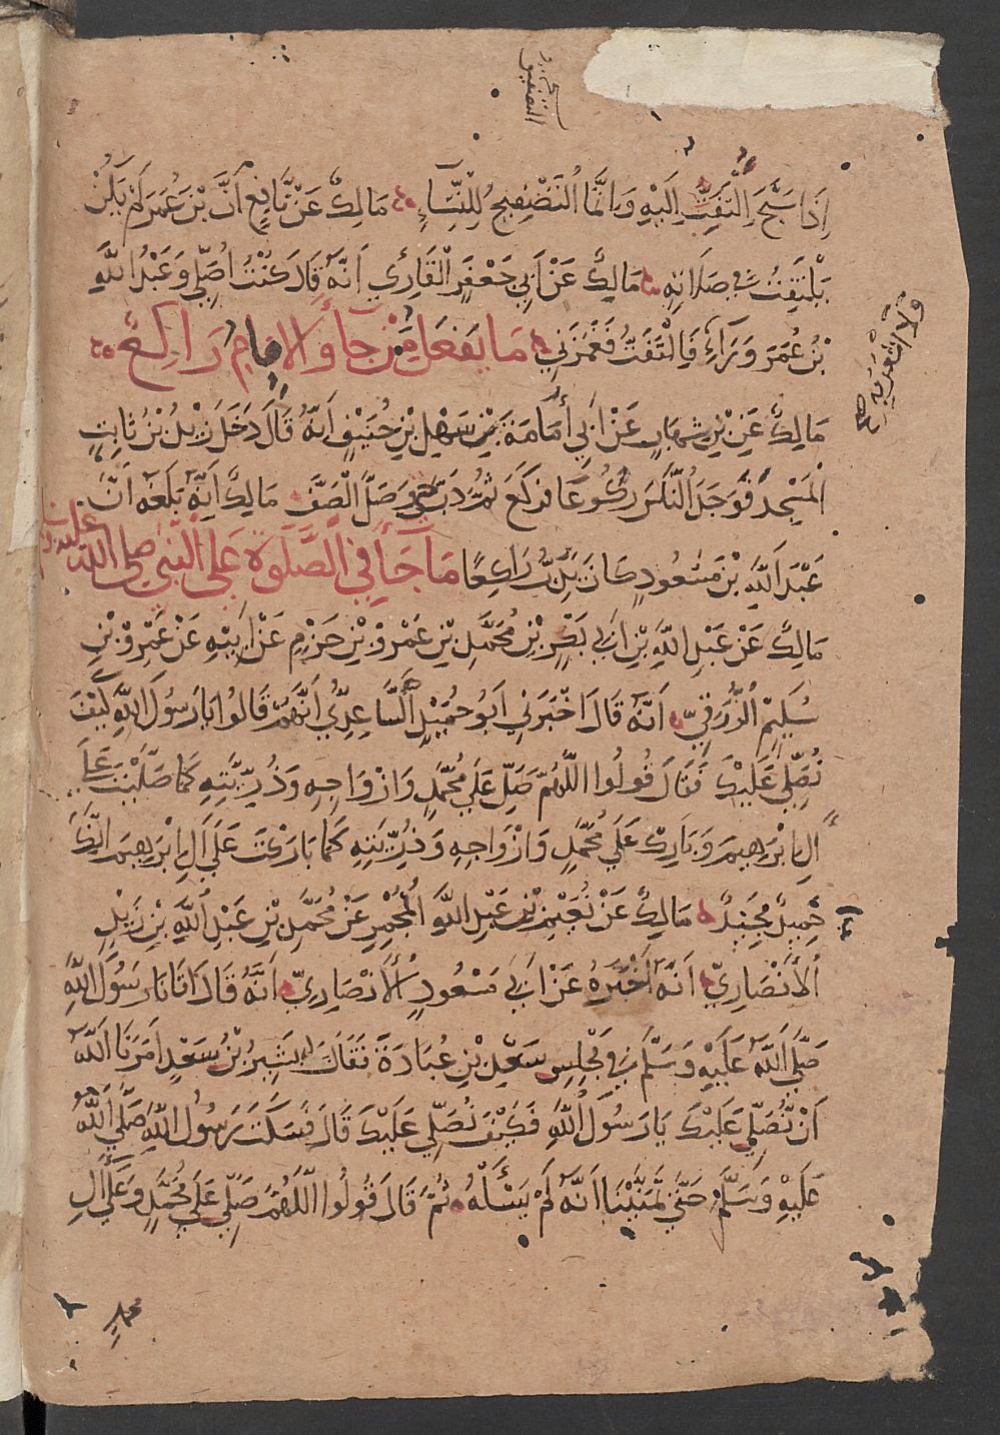 التصفيق
إِذَا سَبَّحَ الْتُفِتَ إِلَيْهِ وَإِنَّمَا التَّصْفِيحُ لِلنِّسَاءِ مَالِكٌ عَنْ نَافِعٍ أَنَّ بْنَ عُمَرَ لَمْ يَكُنْ
يَلْتَفِتُ فِي صَلَاتِهِ مَالِكٌ عَنْ أَبِي جَعْفَرٍ الْقَارِي أَنَّهُ قَالَ كُنْتُ أُصَلِّي وَعَبْدُ اللَّهِ
بْنُ عُمَرَ وَرَاءِ فَالْتَفَتُّ فَغَمَزَنِي مَا يَفْعَلُ مَنْ جَاءَ وَالْإِمَامُ رَاكِعٌ
مَالِكٌ عَنِ بْنِ شِهَابٍ عَنْ أَبِي أُمَامَةَ بْنِ سَهْلِ بْنِ حُنَيْفٍ أَنَّهُ قَالَ دَخَلَ زَيْدُ بْنُ ثَابِتٍ
الْمَسْجِدَ فَوَجَدَ النَّاسَ رُكُوعًا فَرَكَعَ ثُمَّ دَبَّ حَتَّى وَصَلَ الصَّفَّ مَالِكٌ أَنَّهُ بَلَغَهُ أَنَّ
عَبْدَ اللَّهِ بْنَ مَسْعُودٍ كَانَ يَدِبُّ رَاكِعًا مَا جَاءَ فِي الصَّلَوةِ عَلَى النَّبِيِّ صلى الله عليه و
مَالِكٌ عَنْ عَبْدِ اللَّهِ بْنِ أَبِي بَكْرِ بْنِ مُحَمَّدِ بْنِ عَمْرِو بْنِ حَزْمٍ عَنْ أَبِيهِ عَنْ عَمْرِو بْنِ
سُلَيْمٍ الزُّرَقِيِّ أَنَّهُ قَالَ أَخْبَرَنِي أَبُو حُمَيْدٍ السَّاعِدِيُّ أَنَّهُمْ قَالُوا يَا رَسُولَ اللَّهِ كَيْفَ
نُصَلِّي عَلَيْكَ فَقَالَ قُولُوا اللَّهُمَّ صَلِّ عَلَى مُحَمَّدٍ وَأَزْوَاجِهِ وَذُرِّيَّتِهِ كَمَا صَلَّيْتَ عَلَى
آلِ إِبْرَهِيمَ وَبَارِكْ عَلَى مُحَمَّدٍ وَأَزْوَاجِهِ وَذُرِّيَّتِهِ كَمَا بَارَكْتَ عَلَى آلِ إِبْرَهِيمَ إِنَّكَ
حَمِيدٌ مَجِيدٌ مَالِكٌ عَنْ نُعَيْمِ بْنِ عَبْدِ اللَّهِ الْمُجْمِرِ عَنْ مُحَمَّدِ بْنِ عَبْدِ اللَّهِ بْنِ زَيْدٍ
الْأَنْصَارِيِّ أَنَّهُ أَخْبَرَهُ عَنْ أَبِي مَسْعُودٍ الْأَنْصَارِيِّ أَنَّهُ قَالَ أَتَانَا رَسُولُ اللَّهِ
صَلَّى اللَّهُ عَلَيْهِ وَسَلَّمَ فِي مَجْلِسِ سَعْدِ بْنِ عُبَادَةَ فَقَالَ لَهُ بَشِيرُ بْنُ سَعْدٍ أَمَرَنَا اللَّهُ
أَنْ نُصَلِّيَ عَلَيْكَ يَا رَسُولَ اللَّهِ فَكَيْفَ نُصَلِّي عَلَيْكَ قَالَ فَسَكَتَ رَسُولُ اللَّهِ صَلَّى اللَّهُ
عَلَيْهِ وَسَلَّمَ حَتَّى تَمَنَّيْنَا أَنَّهُ لَمْ يَسْأَلْهُ ثُمَّ قَالَ قُولُوا اللَّهُمَّ صَلِّ عَلَى مُحَمَّدٍ وَعَلَى آلِ
محمد